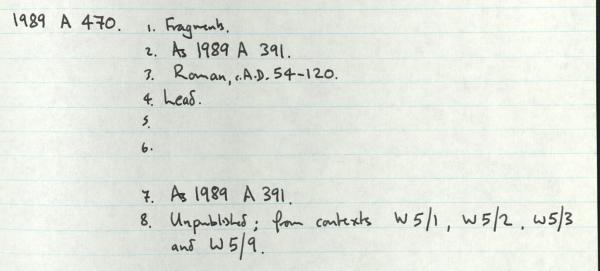 1989 A 470. 1. Fragments.
2. As 1989 A 391.
3. Roman, c.A.D. 54-120.
4. Lead.
5.
6.
7. As 1989 A 391.
8. Unpublished; from contexts W5/1, W5/2, W5/3
and W5/9.